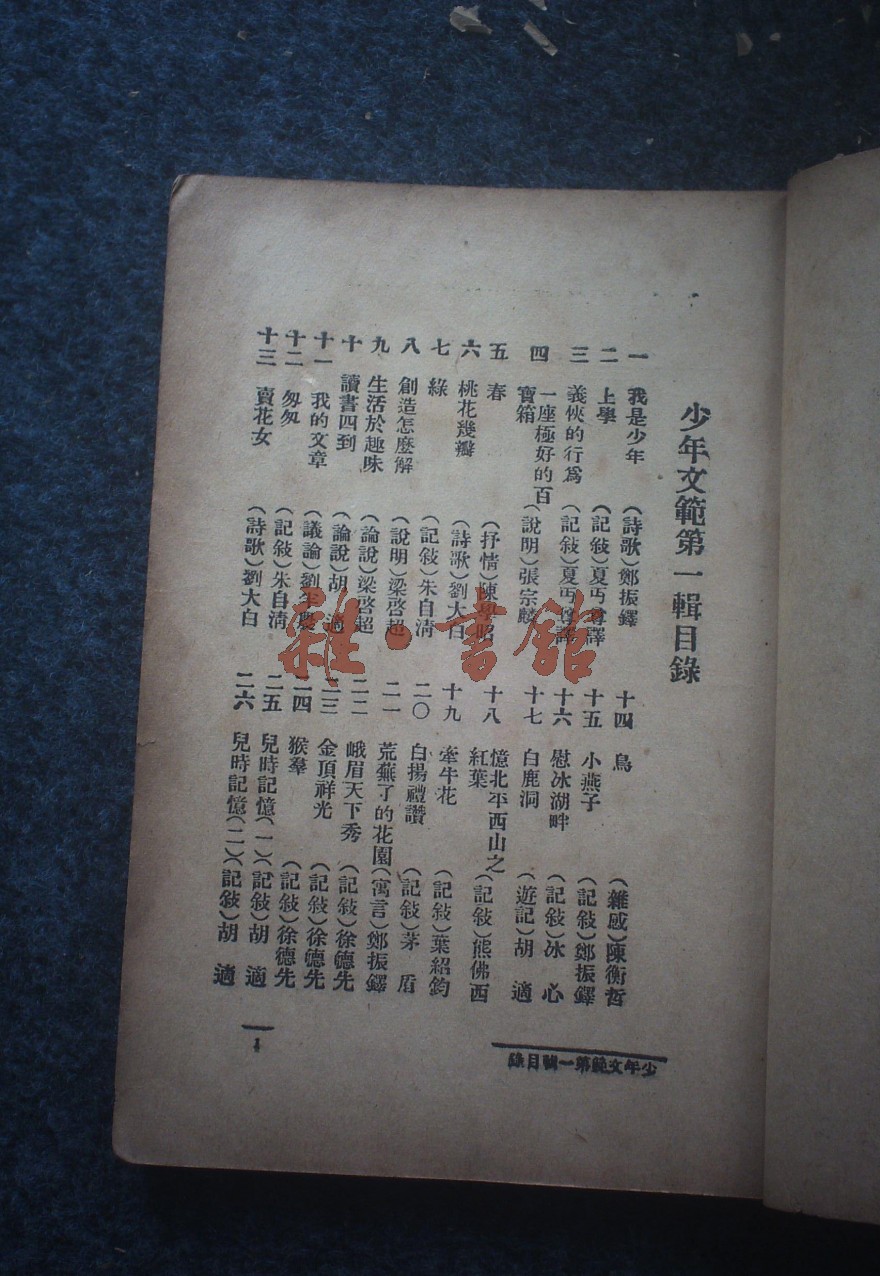 少年文範第一輯目錄
一 我是少年 (詩歌)鄭振鐸
二 上學 (記敍)夏丏尊譯
三 義俠的行爲 (記敍)夏丏尊譯
四 一座極好的百
寶箱 (說明)張宗麟
五 春 (抒情)陳學昭
六 桃花幾瓣 (詩歌)劉大白
七 綠 (記敍)朱自淸
八 創造怎麼解 (說明)梁啓超
九 生活於趣味 (論說)梁啓超
十 讀書四到 (論說)胡 適
十一 我的文章 (議論)劉半農
十二 匆匆 (記敍)朱自淸
十三 賣花女 (詩歌)劉大白
十四 鳥 (雜感)陳衡哲
十五 小燕子 (記敍)鄭振鐸
十六 慰冰湖畔 (記敍)冰 心
十七 白鹿洞 (遊記)胡 適
十八 憶北平西山之
紅葉 (記敍)熊佛西
十九 牽牛花 (記敍)葉紹鈞
二〇 白揚禮讚 (記敍)茅 盾
二一 荒蕪了的花園(寓言)鄭振鐸
二二 峨眉天下秀 (記敍)徐德先
二三 金頂祥光 (記敍)徐德先
二四 猴羣 (記敍)徐德先
二五 兒時記憶(一)(記敍)胡 適
二六 兒時記憶(二)(記敍)胡 適
少年文範第一輯目錄
1
雜·書館